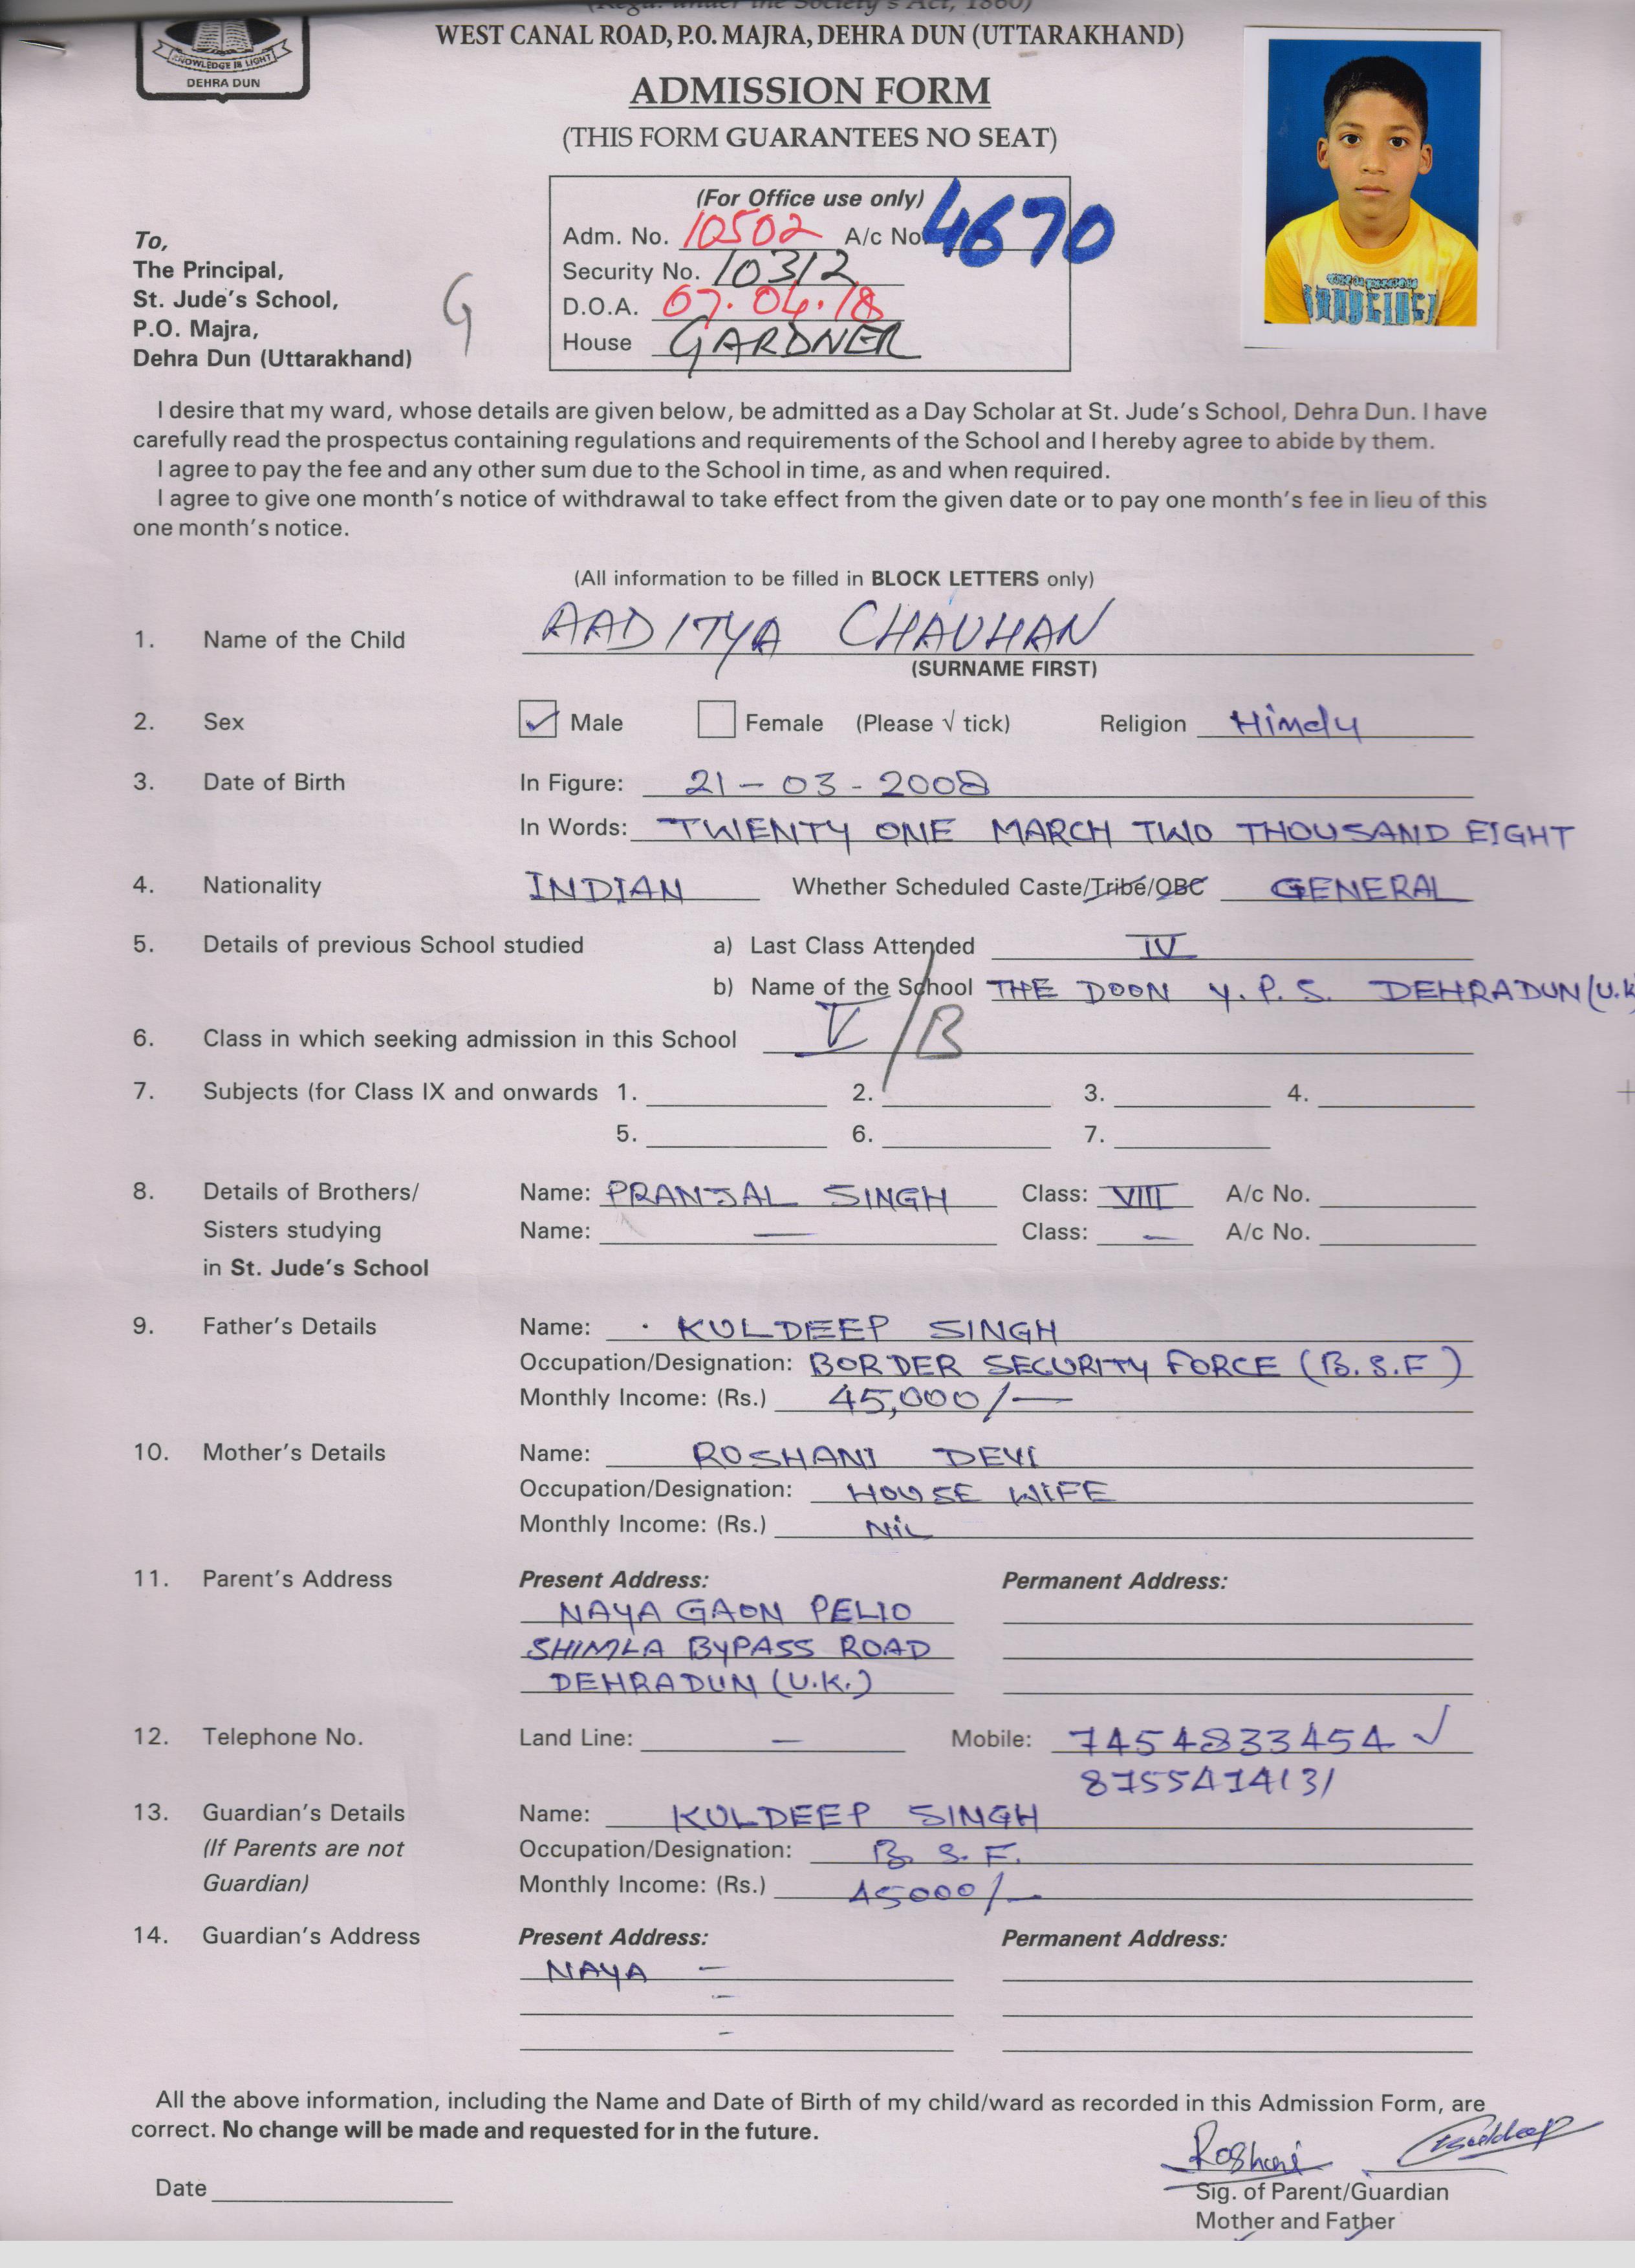 (Regd. under the Society's Act, 1860)
WEST CANAL ROAD, P.O. MAJRA, DEHRA DUN (UTTARAKHAND)
KNOWLEDGE IS LIGHT
DEHRA DUN
ADMISSION FORM
(THIS FORM GUARANTEES NO SEAT)
(For Office use only)
Adm. No. 10502 A/c No 4670
Security No. 10312
D.O.A. 07.04.18
House GARDNER
To,
The Principal,
St. Jude's School,
P.O. Majra,
Dehra Dun (Uttarakhand)
G
I desire that my ward, whose details are given below, be admitted as a Day Scholar at St. Jude's School, Dehra Dun. I have
carefully read the prospectus containing regulations and requirements of the School and I hereby agree to abide by them.
I agree to pay the fee and any other sum due to the School in time, as and when required.
I agree to give one month's notice of withdrawal to take effect from the given date or to pay one month's fee in lieu of this
one month's notice.
(All information to be filled in BLOCK LETTERS only)
1. Name of the Child AADITYA CHAUHAN
(SURNAME FIRST)
2. Sex ✓ Male Female (Please √ tick) Religion Hindu
3. Date of Birth In Figure: 21 - 03 - 2008
In Words: TWENTY ONE MARCH TWO THOUSAND EIGHT
4. Nationality INDIAN Whether Scheduled Caste/Tribe/OBC GENERAL
5. Details of previous School studied a) Last Class Attended IV
b) Name of the School THE DOON Y. P. S. DEHRADUN (U.K
6. Class in which seeking admission in this School V /B
7. Subjects (for Class IX and onwards 1. 2. 3. 4.
5. 6. 7.
8. Details of Brothers/ Name: PRANJAL SINGH Class: VIII A/c No.
Sisters studying Name: — Class: — A/c No.
in St. Jude's School
9. Father's Details Name: KULDEEP SINGH
Occupation/Designation: BORDER SECURITY FORCE (B.S.F)
Monthly Income: (Rs.) 45,000/—
10. Mother's Details Name: ROSHANI DEVI
Occupation/Designation: HOUSE WIFE
Monthly Income: (Rs.) NiL
11. Parent's Address Present Address: Permanent Address:
NAYA GAON PELIO
SHIMLA BYPASS ROAD
DEHRADUN (U.K.)
12. Telephone No. Land Line: — Mobile: 7454833454 ✓
8755474131
13. Guardian's Details Name: KULDEEP SINGH
(If Parents are not Occupation/Designation: B. S. F.
Guardian) Monthly Income: (Rs.) 45000/—
14. Guardian's Address Present Address: Permanent Address:
NAYA —
—
—
All the above information, including the Name and Date of Birth of my child/ward as recorded in this Admission Form, are
correct. No change will be made and requested for in the future.
Roshani Kuldeep
Date
Sig. of Parent/Guardian
Mother and Father